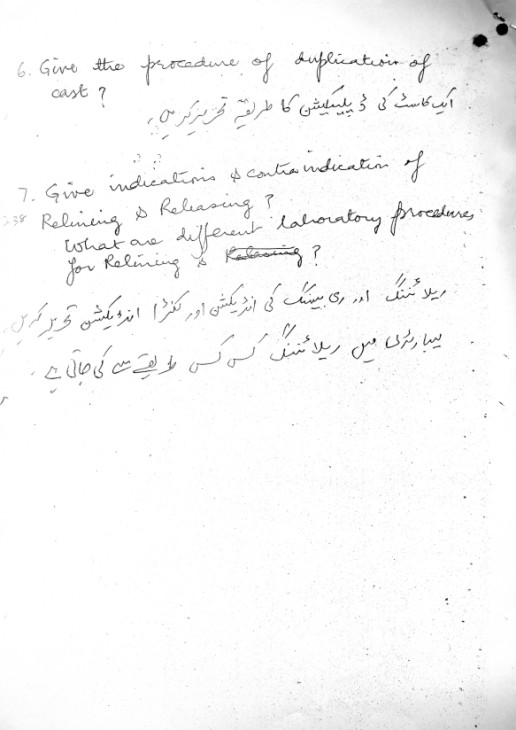 6. Give the procedure of duplication of
cast ?
ایک کاسٹ کی ڈپلیکیشن کا طریقہ تحریر کریں۔
7. Give indications & contraindication of
238 Relining & Releasing ?
What are different laboratory procedures
for Relining & Releasing ?
ریلائننگ اور ری بیسنگ کی انڈیکیشن اور کنٹرا انڈیکیشن تحریر کریں
لیبارٹری میں ریلائننگ کس کس طریقے سے کی جاتی ہے۔